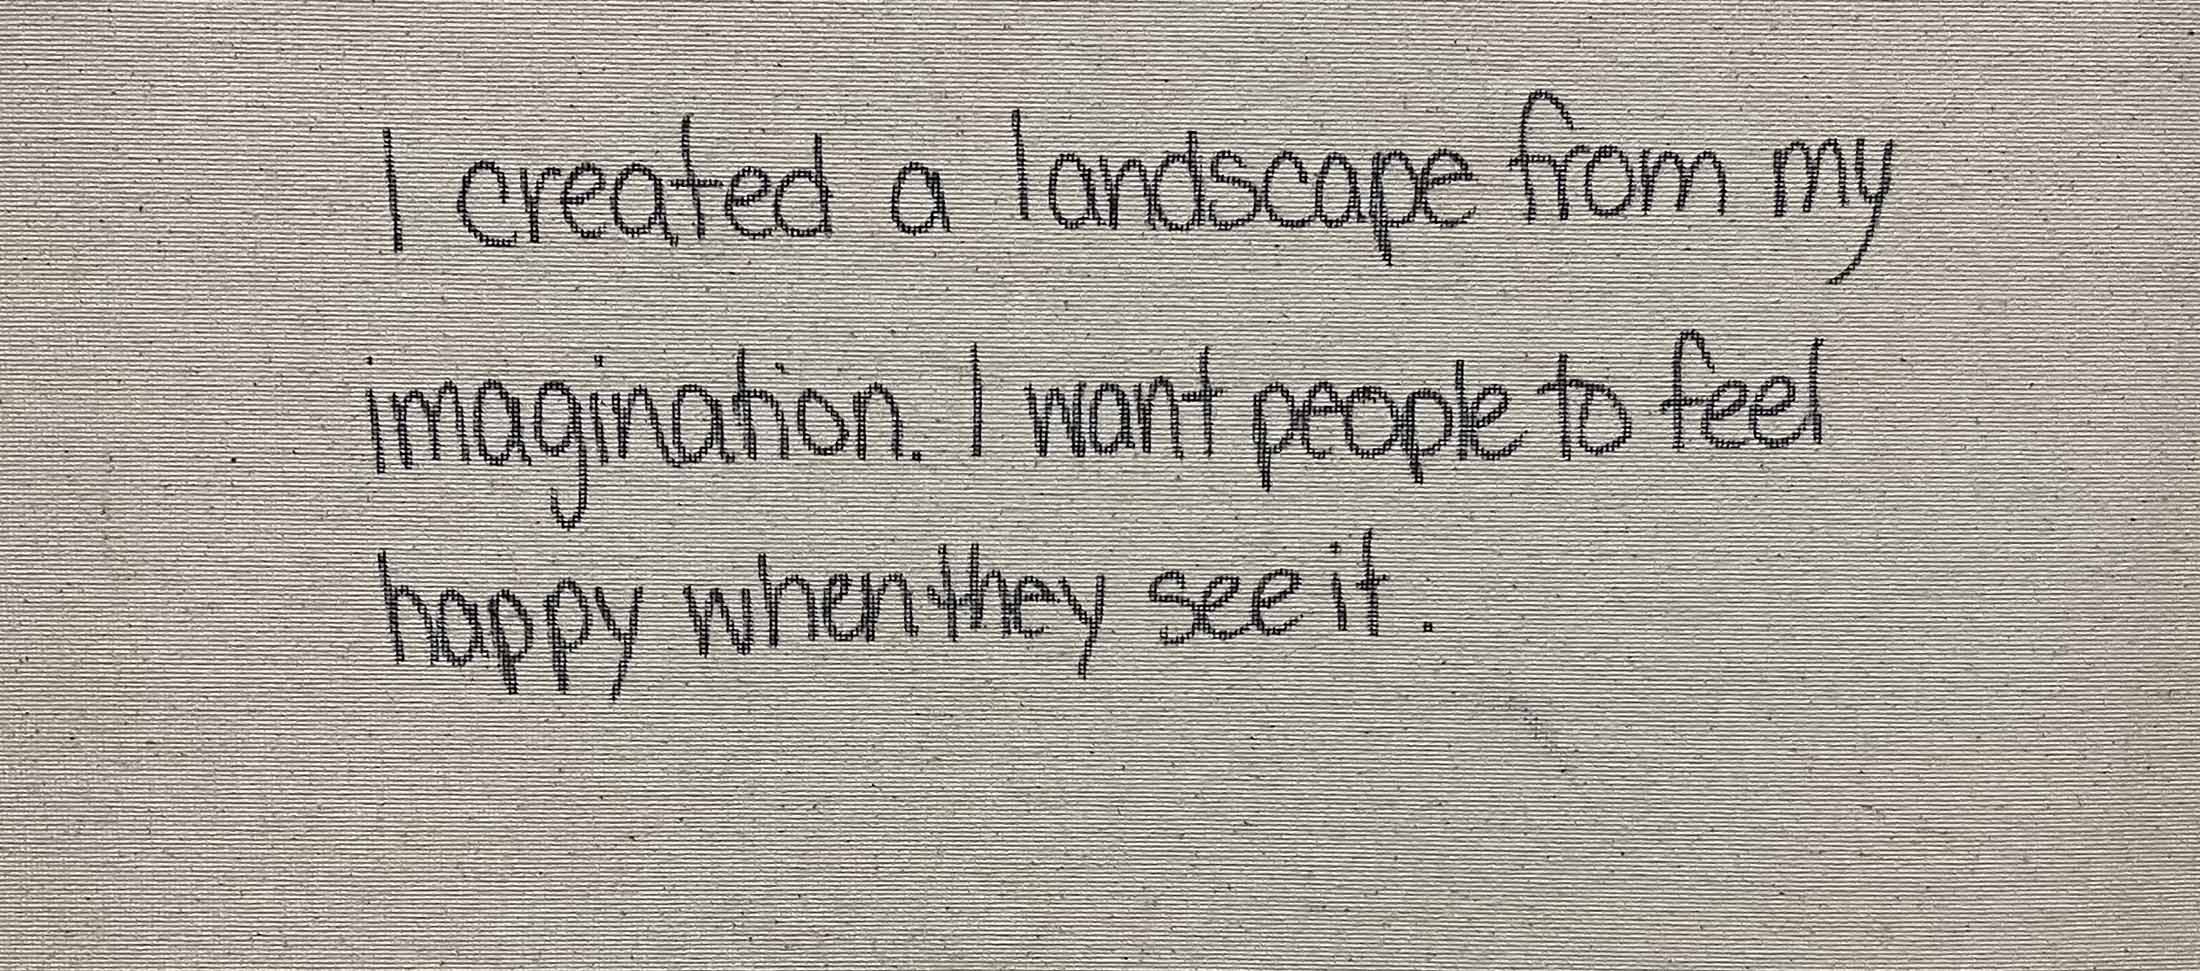 I created a landscape from my
imagination. I want people to feel
happy when they see it.